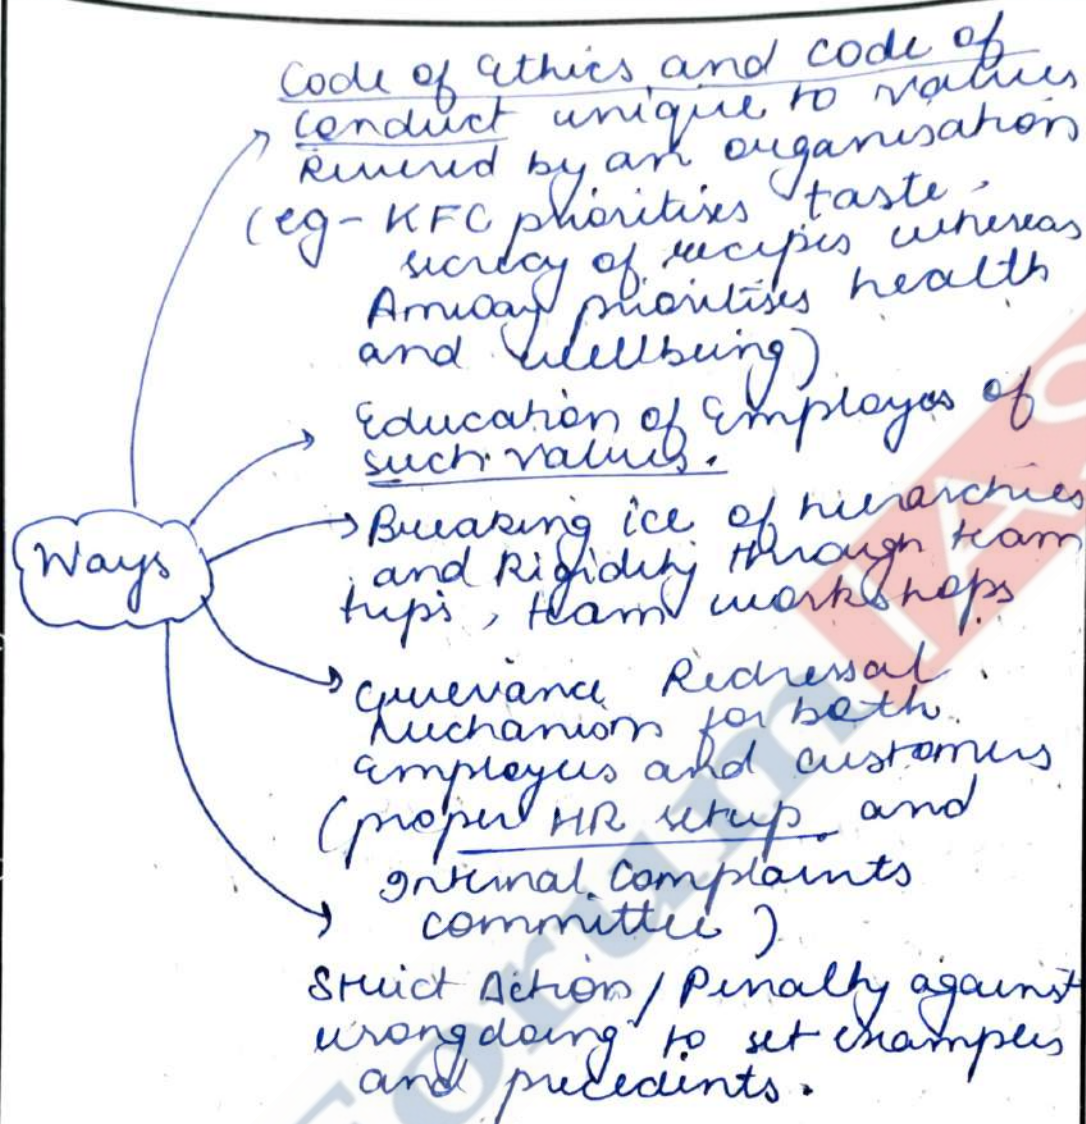 Code of Ethics and Code of
Conduct unique to values
Revered by an organisation
(eg - KFC prioritises taste,
secrecy of recipes whereas
Amway prioritises health
and wellbeing)
Education of Employees of
such values.
Ways
Breaking ice of hierarchies
and Rigidity through team
trips, team workshops
Grievance Redressal
Mechanism for both
Employees and customers
(proper HR setup and
Internal Complaints
committee)
Strict Action / Penalty against
wrongdoing to set examples
and precedents.
Forum IAS